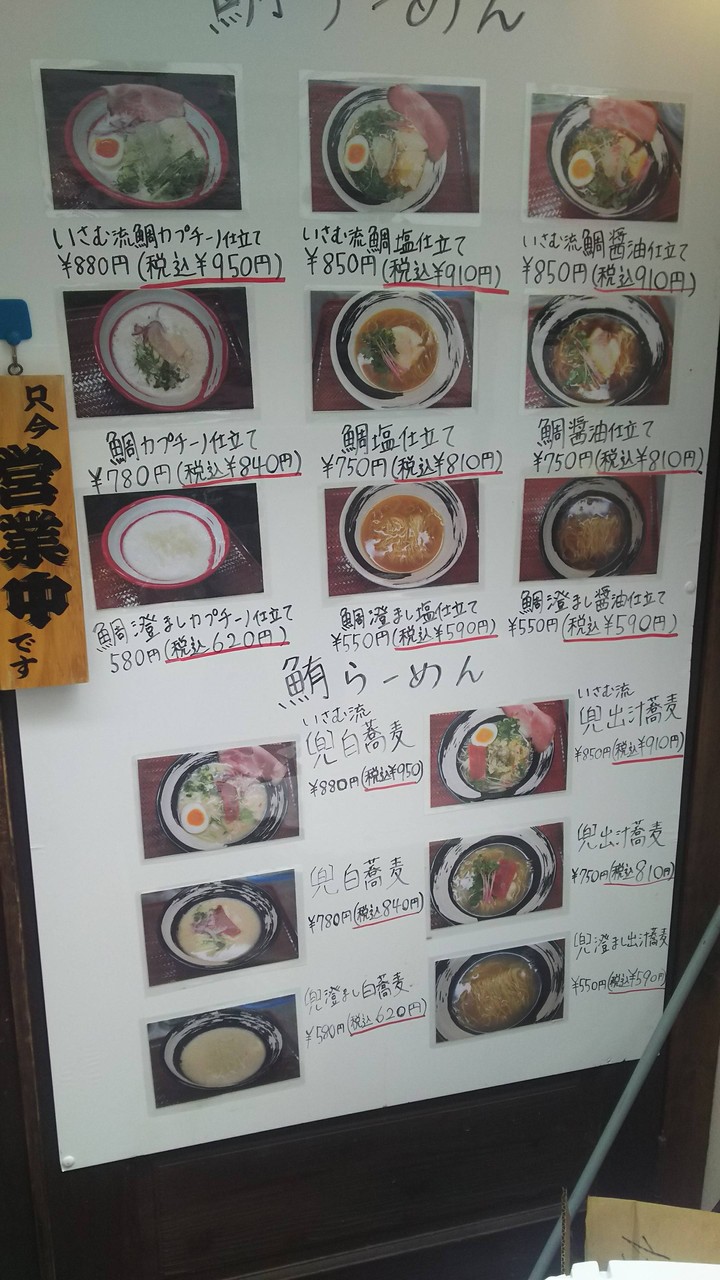 鯛らーめん
いさむ流鯛カプチーノ仕立て
¥880円(税込¥950円)
いさむ流鯛塩仕立て
¥850円(税込¥910円)
いさむ流鯛醤油仕立て
¥850円(税込910円)
鯛カプチーノ仕立て
¥780円(税込¥840円)
鯛塩仕立て
¥750円(税込¥810円)
鯛醤油仕立て
¥750円(税込¥810円)
鯛澄ましカプチーノ仕立て
580円(税込620円)
鯛澄まし塩仕立て
¥550円(税込¥590円)
鯛澄まし醤油仕立て
¥550円(税込¥590円)
只今
営業中
です
鮪らーめん
いさむ流
兜白蕎麦
¥880円(税込¥950)
いさむ流
兜出汁蕎麦
¥850円(税込¥910円)
兜白蕎麦
¥780円(税込840円)
兜出汁蕎麦
¥750円(税込810円)
兜澄まし白蕎麦
¥580円(税込620円)
兜澄まし出汁蕎麦
¥550円(税込¥590円)